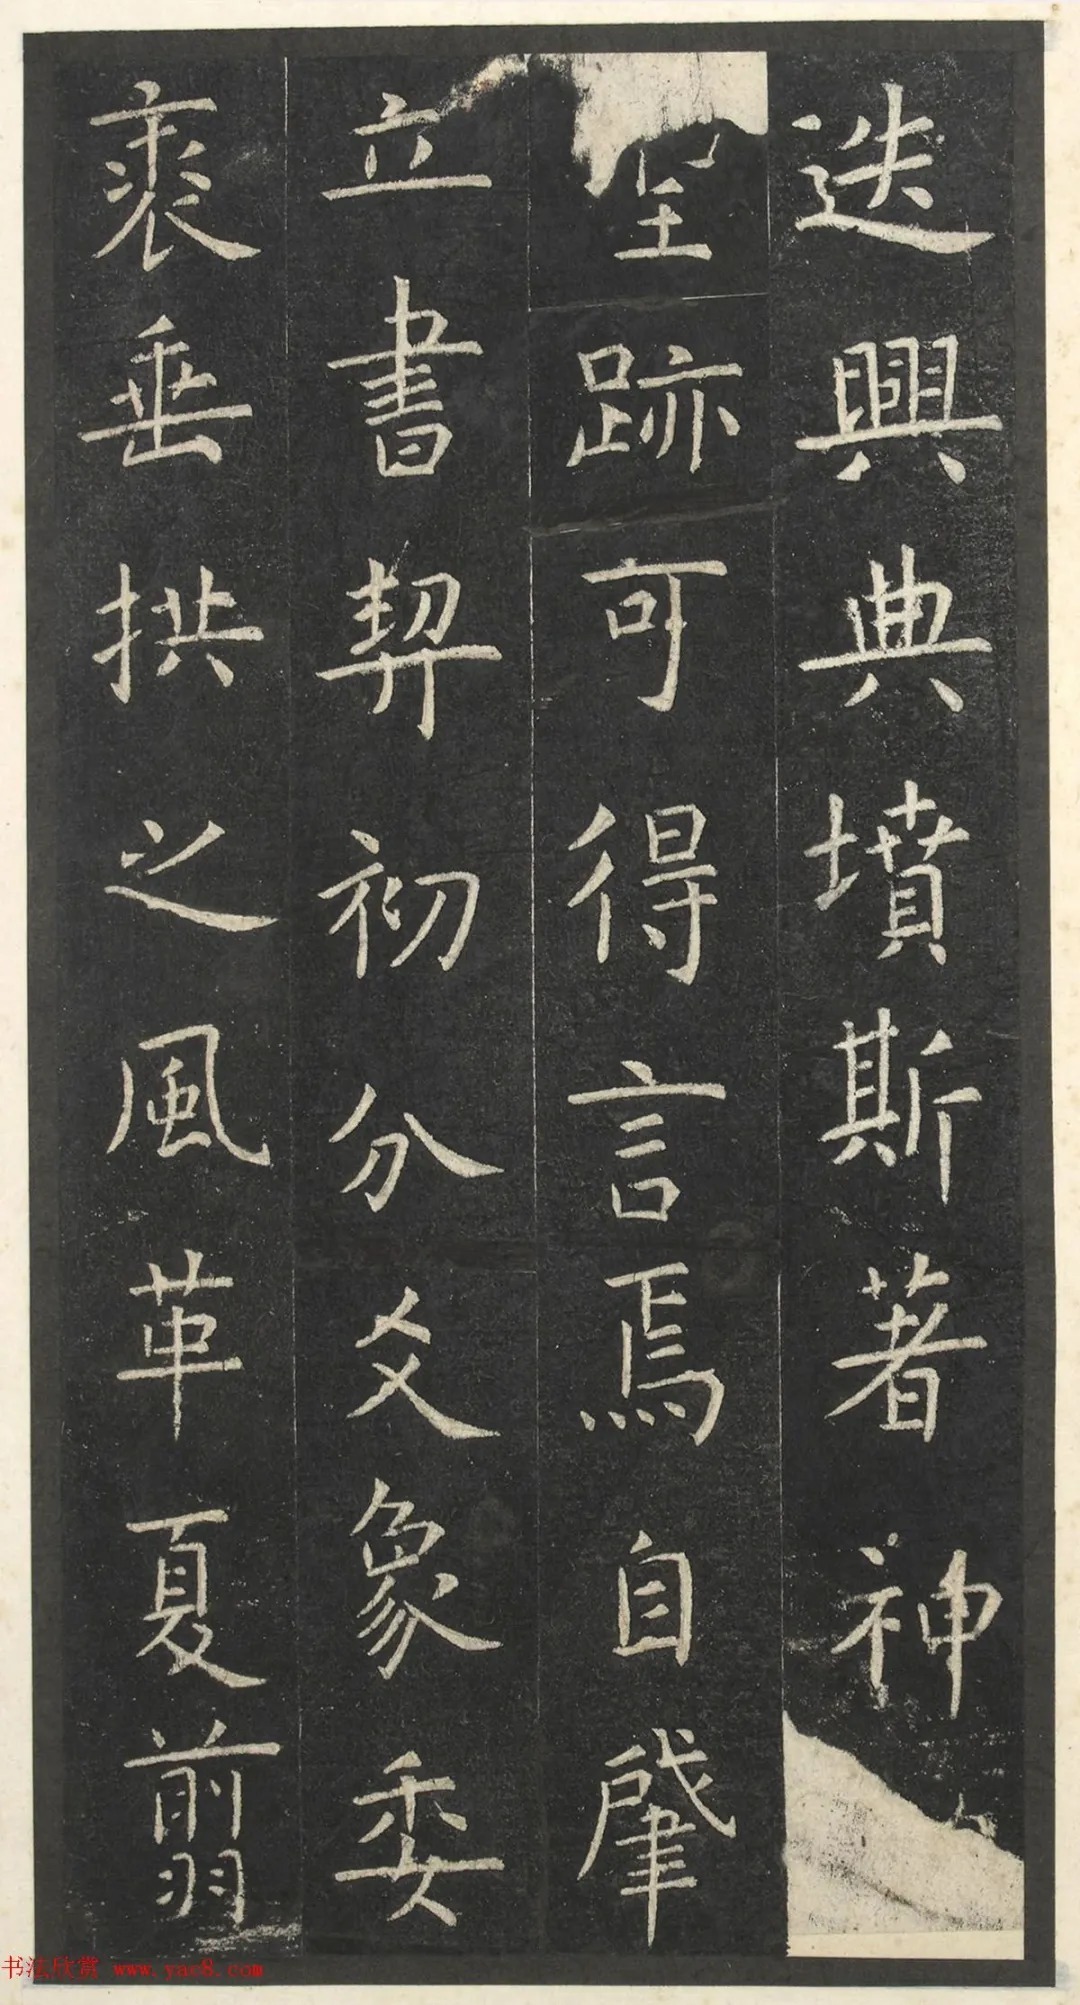 迭興典墳斯著神
聖跡可得言焉自肇
立書契初分爻象委
裘垂拱之風革夏翦
书法欣赏 www.yac8.com